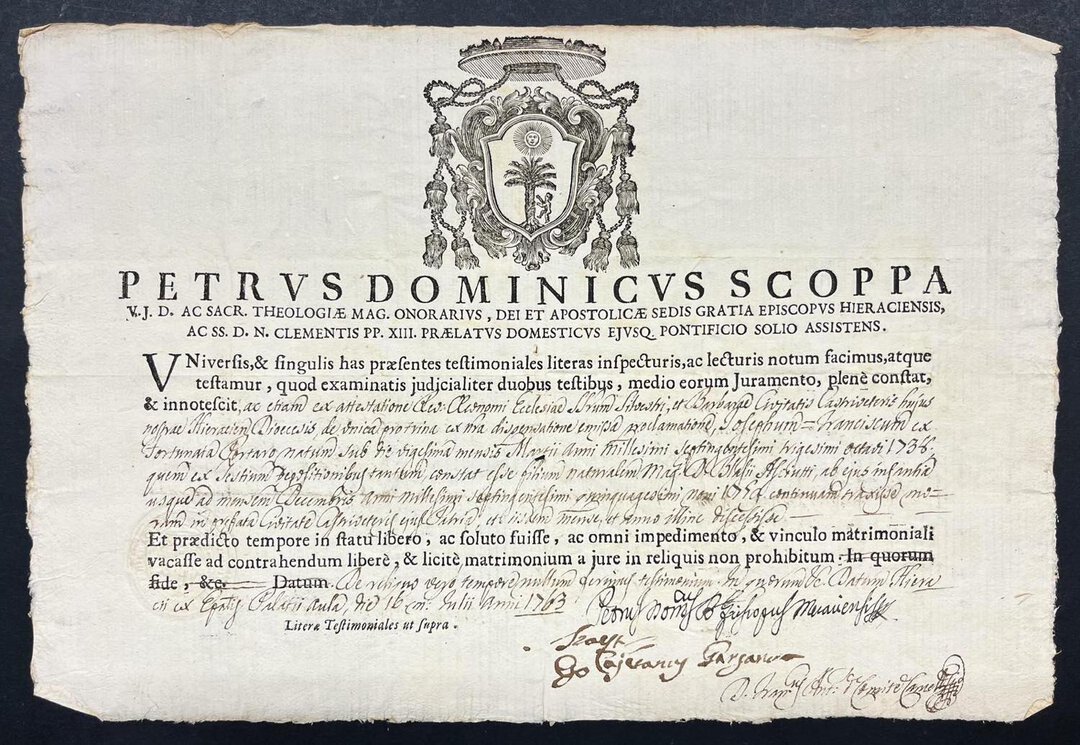 PETRVS DOMINICVS SCOPPA
V. J. D. AC SACR. THEOLOGIÆ MAG. ONORARIVS, DEI ET APOSTOLICÆ SEDIS GRATIA EPISCOPVS HIERACIENSIS,
AC SS. D. N. CLEMENTIS PP. XIII. PRÆLATVS DOMESTICVS EJVSQ. PONTIFICIO SOLIO ASSISTENS.
VNiversis, & singulis has præsentes testimoniales literas inspecturis, ac lecturis notum facimus, atque
testamur, quod examinatis judicialiter duobus testibus, medio eorum Juramento, plenè constat,
& innotescit, ac etiam ex attestatione Ecclesiae Silvestri, et Barbarae Civitatis Castriveteris hujus
nostrae Hieracien Dioecesis, de unica ex dispensatione emissa proclamatione, Josephum Franciscum ex
natum sub die vigesima mensis Martii Anni Millesimi septingentesimi trigesimi octavi 1738.
quem ex Testium depositionibus tantum constat esse filium naturalem Mag. D. Blasii ab ejus infantia
usque ad mensem Decembris Anni Millesimi septingentesimi quinquagesimi noni continuam traxisse mo-
ram in Civitate Castriveteris ejus Patria, et mense, et Anno illinc discessisse
Et prædicto tempore in statu libero, ac soluto fuisse, ac omni impedimento, & vinculo matrimoniali
vacasse ad contrahendum liberè, & licitè matrimonium a jure in reliquis non prohibitum. In quorum
fide, &c. Datum. De reliquo vero tempore nullum ferimus testimonium. In quorum &c. Datum Hiera
cii ex Palatii Aula, die 16 Julii Anni 1763
Literæ Testimoniales ut supra.
Petrus
Gargano